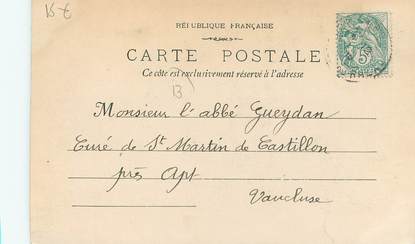 15 €
RÉPUBLIQUE FRANÇAISE
CARTE POSTALE
Ce côté est exclusivement réservé à l'adresse
13
Monsieur l'abbé Gueydan
Curé de St Martin de Castillon
près Apt
Vaucluse
5